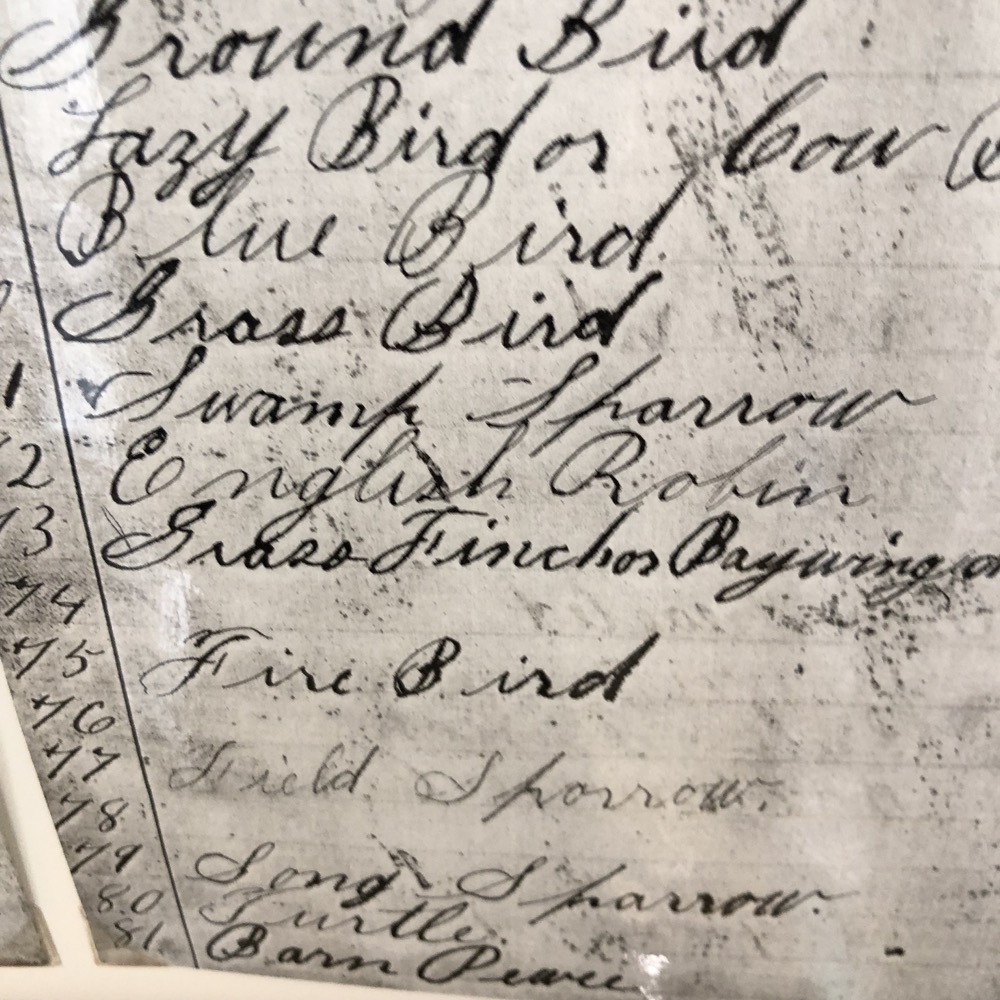 Ground Bird
Lazy Bird or Cow
Blue Bird.
Grass Bird
1 Swamp Sparrow
72 English Robin
73 Grass Finch or Baywing or
74
75 Fire Bird
76
77 Field Sparrow.
78
79 Song Sparrow.
80 Turtle.
81 Barn Pewee